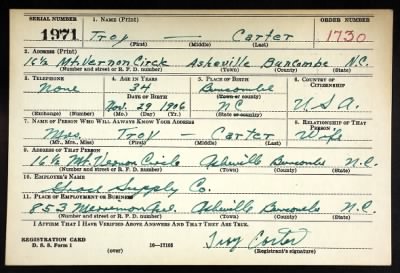 SERIAL NUMBER 1. NAME (Print) ORDER NUMBER
1971 Troy — Carter 1730
(First) (Middle) (Last)
2. ADDRESS (Print)
16½ Mt. Vernon Circle Asheville Buncombe N.C.
(Number and street or R. F. D. number) (Town) (County) (State)
3. TELEPHONE 4. AGE IN YEARS 5. PLACE OF BIRTH 6. COUNTRY OF CITIZENSHIP
None 34 Buncombe
DATE OF BIRTH (Town or county)
Nov. 29 1906 NC U.S.A.
(Exchange) (Number) (Mo.) (Day) (Yr.) (State or country)
7. NAME OF PERSON WHO WILL ALWAYS KNOW YOUR ADDRESS 8. RELATIONSHIP OF THAT PERSON
Mrs. Troy — Carter Wife
(Mr., Mrs., Miss) (First) (Middle) (Last)
9. ADDRESS OF THAT PERSON
16½ Mt. Vernon Circle Asheville Buncombe N.C.
(Number and street or R. F. D. number) (Town) (County) (State)
10. EMPLOYER'S NAME
Supply Co.
11. PLACE OF EMPLOYMENT OR BUSINESS
853 Merrimon Ave. Asheville Buncombe N.C.
(Number and street or R. F. D. number) (Town) (County) (State)
I AFFIRM THAT I HAVE VERIFIED ABOVE ANSWERS AND THAT THEY ARE TRUE.
REGISTRATION CARD
D. S. S. Form 1 (over) 16—17105 Troy Carter
(Registrant's signature)